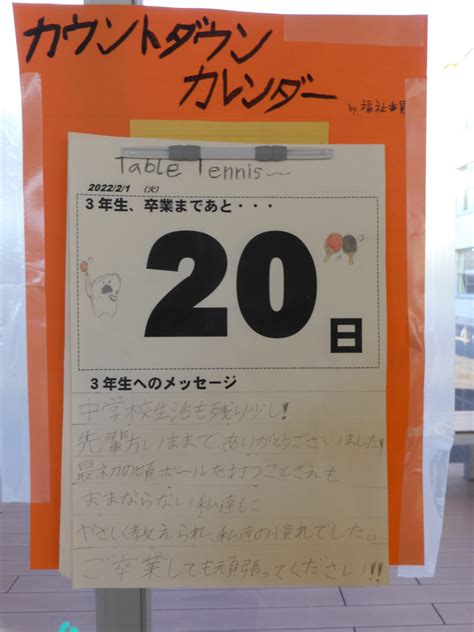 カウントダウン
カレンダー
by 福祉委員
Table Tennis〜
2022/2/1 (火)
3年生、卒業まであと・・・
20日
3年生へのメッセージ
中学校生活も残り少し!
先輩方いままで、ありがとうございました!
最初の頃ボールを打つことさえも
ままならない私達に
やさしく教えられ、私達の憧れでした。
ご卒業しても頑張ってください!!